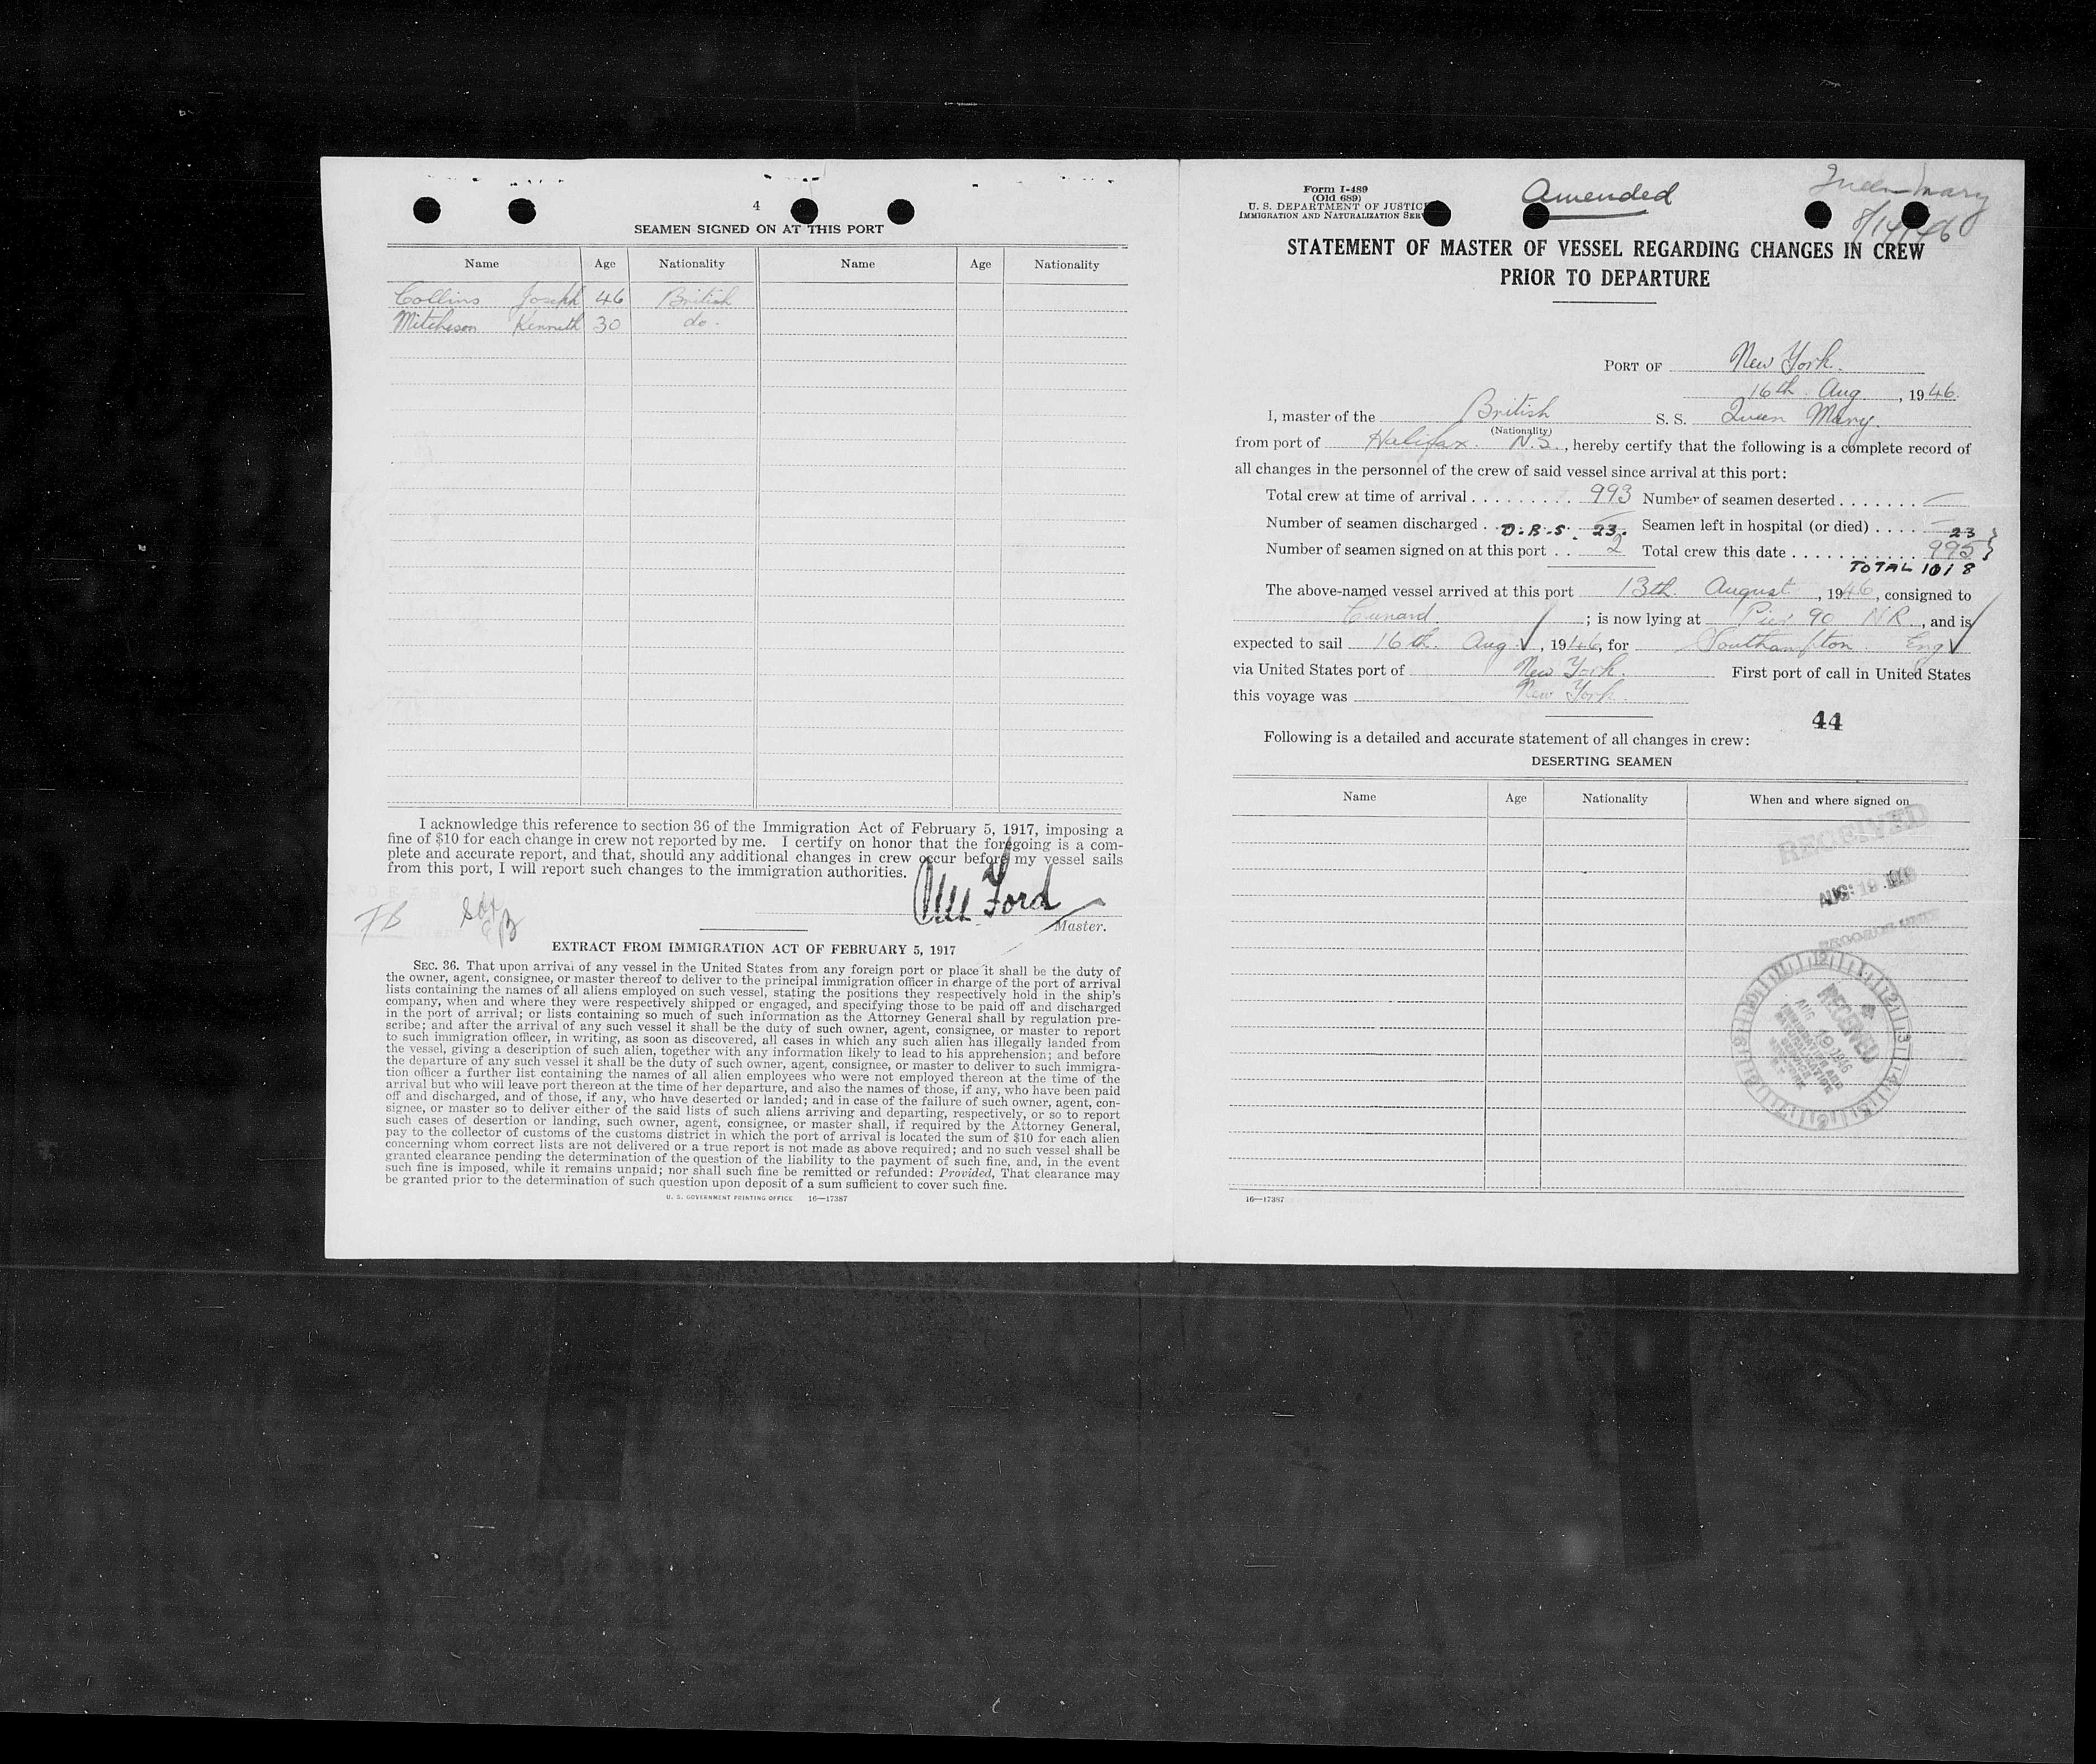 4
SEAMEN SIGNED ON AT THIS PORT
Name Age Nationality Name Age Nationality
Collins Joseph 46 British
Mitcheson Kenneth 30 do.
I acknowledge this reference to section 36 of the Immigration Act of February 5, 1917, imposing a
fine of $10 for each change in crew not reported by me. I certify on honor that the foregoing is a com-
plete and accurate report, and that, should any additional changes in crew occur before my vessel sails
from this port, I will report such changes to the immigration authorities.
Ford
Master.
EXTRACT FROM IMMIGRATION ACT OF FEBRUARY 5, 1917
SEC. 36. That upon arrival of any vessel in the United States from any foreign port or place it shall be the duty of
the owner, agent, consignee, or master thereof to deliver to the principal immigration officer in charge of the port of arrival
lists containing the names of all aliens employed on such vessel, stating the positions they respectively hold in the ship's
company, when and where they were respectively shipped or engaged, and specifying those to be paid off and discharged
in the port of arrival; or lists containing so much of such information as the Attorney General shall by regulation pre-
scribe; and after the arrival of any such vessel it shall be the duty of such owner, agent, consignee, or master to report
to such immigration officer, in writing, as soon as discovered, all cases in which any such alien has illegally landed from
the vessel, giving a description of such alien, together with any information likely to lead to his apprehension; and before
the departure of any such vessel it shall be the duty of such owner, agent, consignee, or master to deliver to such immigra-
tion officer a further list containing the names of all alien employees who were not employed thereon at the time of the
arrival but who will leave port thereon at the time of her departure, and also the names of those, if any, who have been paid
off and discharged, and of those, if any, who have deserted or landed; and in case of the failure of such owner, agent, con-
signee, or master so to deliver either of the said lists of such aliens arriving and departing, respectively, or so to report
such cases of desertion or landing, such owner, agent, consignee, or master shall, if required by the Attorney General,
pay to the collector of customs of the customs district in which the port of arrival is located the sum of $10 for each alien
concerning whom correct lists are not delivered or a true report is not made as above required; and no such vessel shall be
granted clearance pending the determination of the question of the liability to the payment of such fine, and, in the event
such fine is imposed, while it remains unpaid; nor shall such fine be remitted or refunded: Provided, That clearance may
be granted prior to the determination of such question upon deposit of a sum sufficient to cover such fine.
U. S. GOVERNMENT PRINTING OFFICE 16—17387
Form I-489
(Old 689)
U. S. DEPARTMENT OF JUSTICE
IMMIGRATION AND NATURALIZATION SERV
Amended
Queen Mary
8/14/46
STATEMENT OF MASTER OF VESSEL REGARDING CHANGES IN CREW
PRIOR TO DEPARTURE
PORT OF New York.
16th Aug , 1946.
I, master of the British S. S. Queen Mary.
(Nationality)
from port of Halifax. N.S., hereby certify that the following is a complete record of
all changes in the personnel of the crew of said vessel since arrival at this port:
Total crew at time of arrival . . . . . . . . . 993 Number of seamen deserted . . . . . . . —
Number of seamen discharged . . D.B.S. 23. Seamen left in hospital (or died) . . . . —
23
Number of seamen signed on at this port . . 2 Total crew this date . . . . . . . . . . . 995
TOTAL 1018
The above-named vessel arrived at this port 13th August , 1946, consigned to
Cunard. ; is now lying at Pier 90 NR , and is
expected to sail 16th. Aug , 1946, for Southampton Eng
via United States port of New York. First port of call in United States
this voyage was New York.
44
Following is a detailed and accurate statement of all changes in crew:
DESERTING SEAMEN
Name Age Nationality When and where signed on
RECEIVED
AUG 19
RECEIVED
AUG 19 1946
16—17387